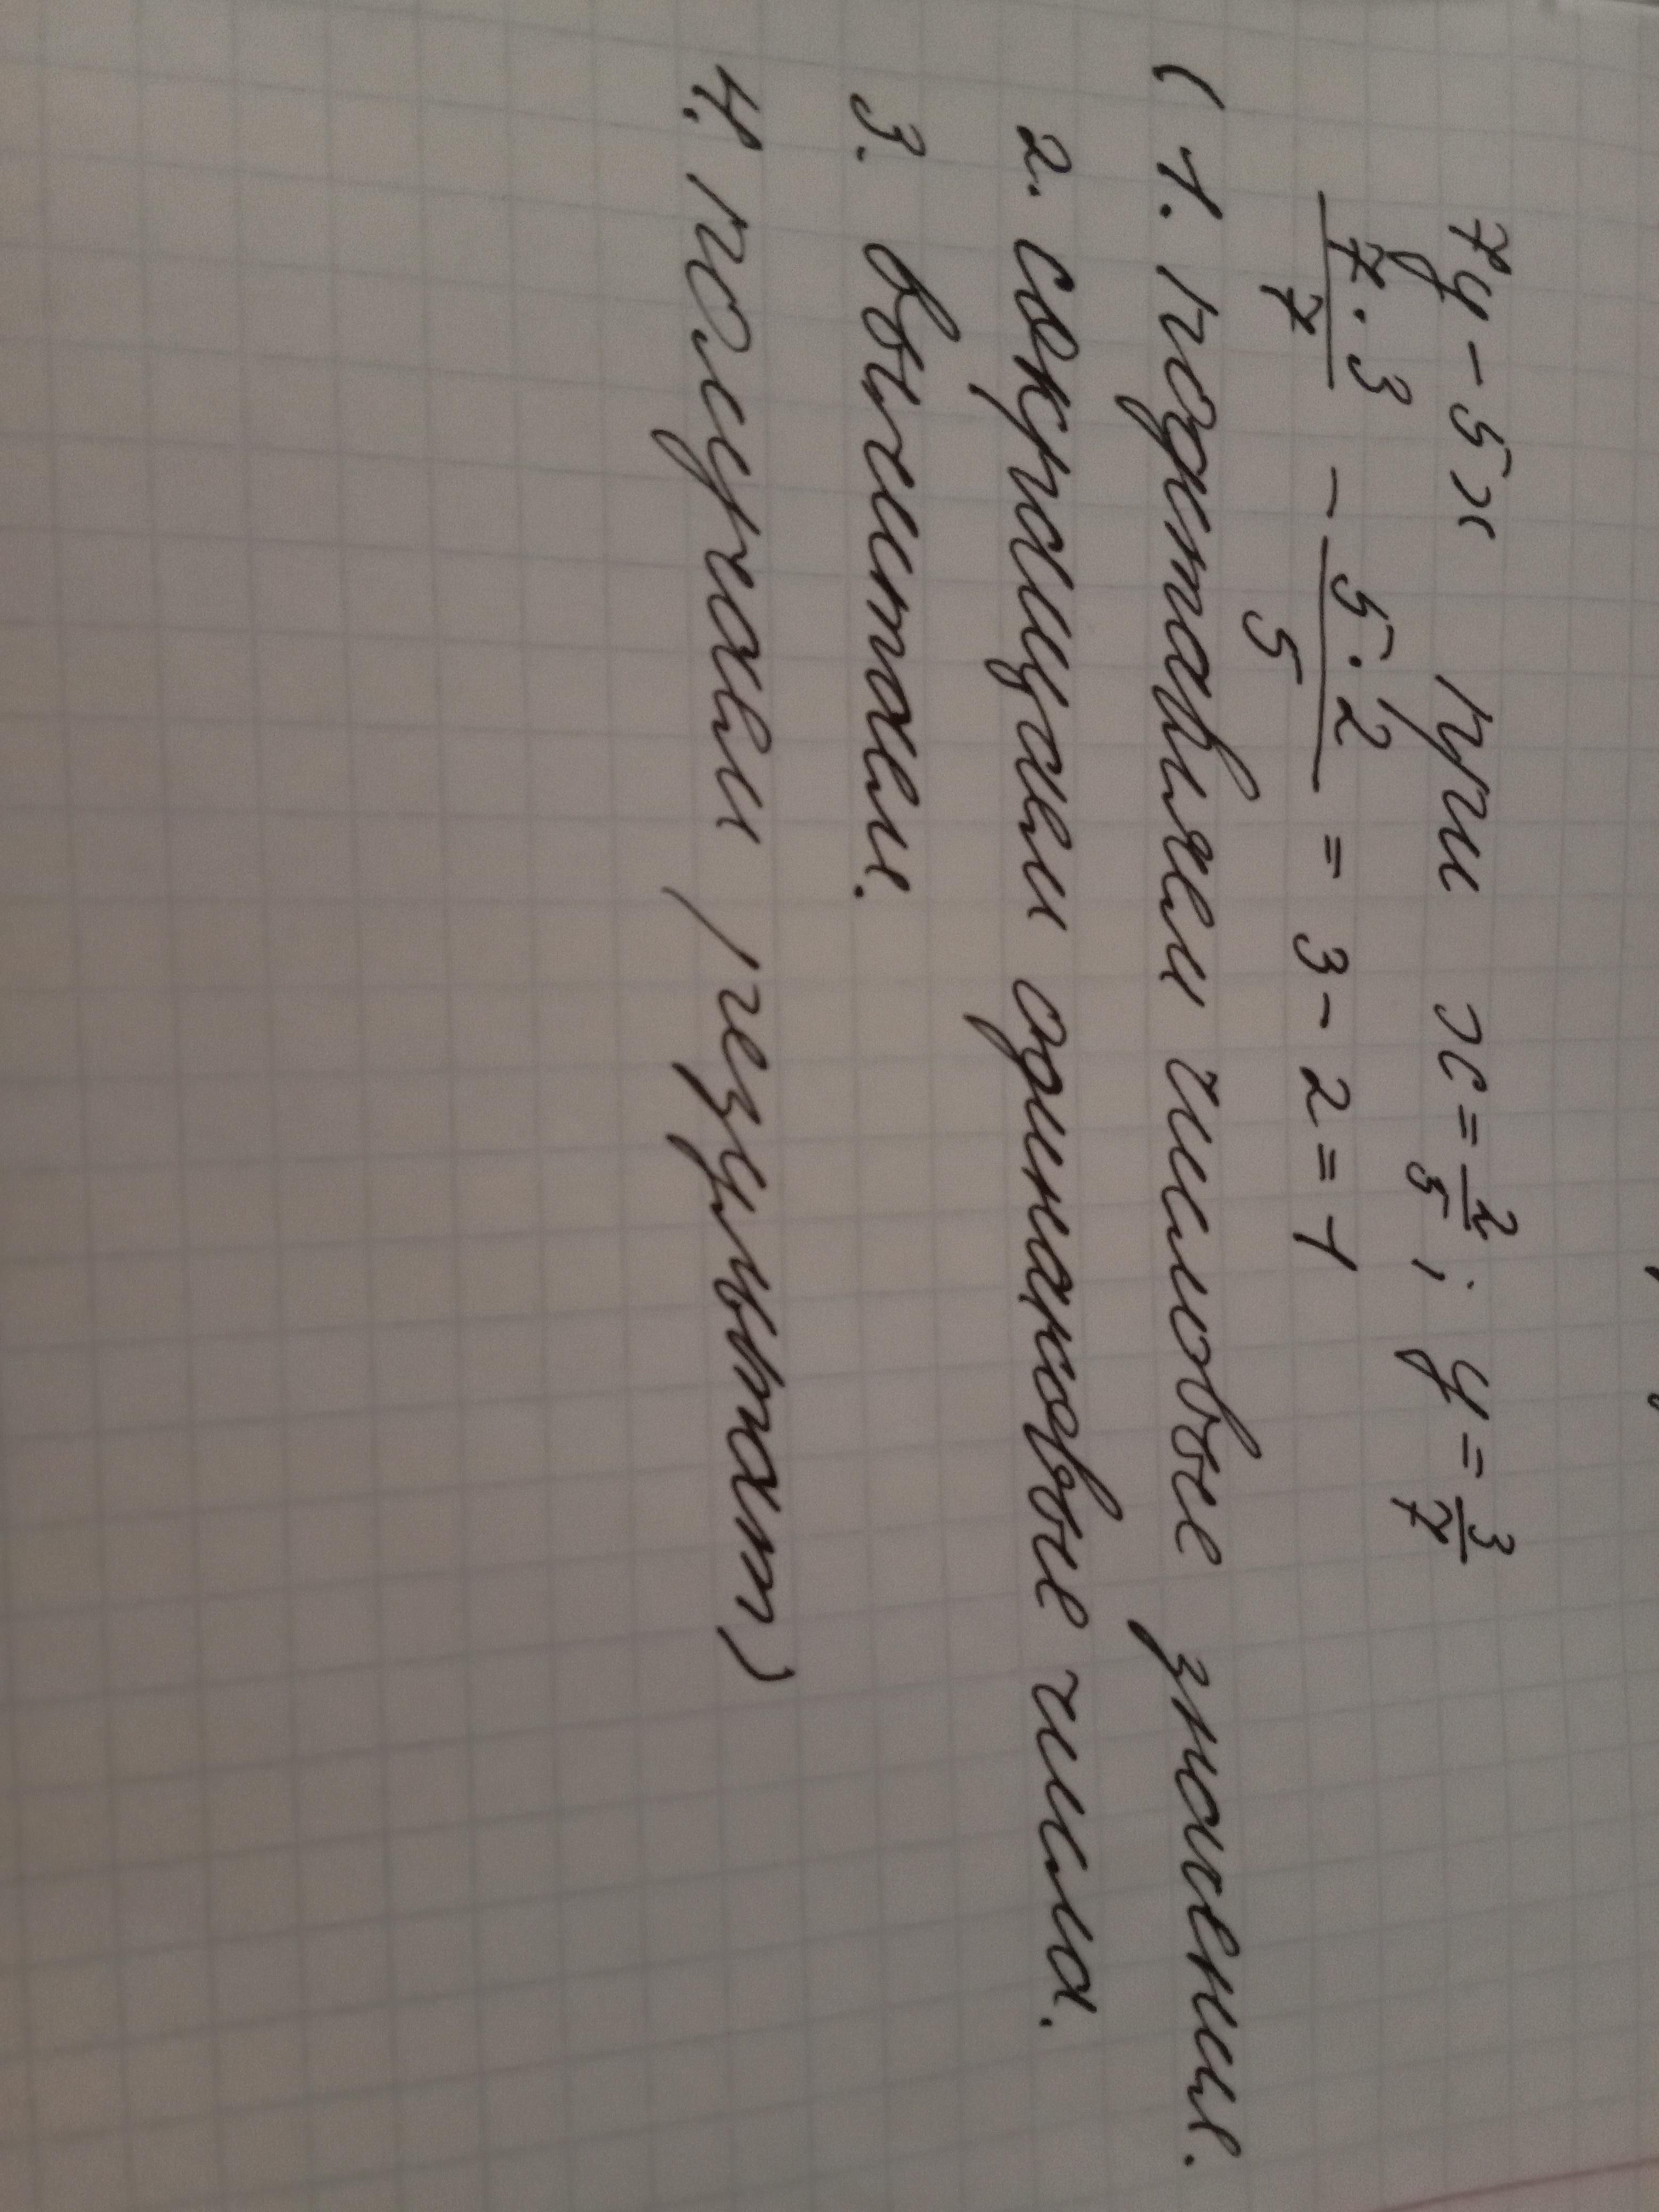 7y - 5x при x = 2/5 ; y = 3/7
7·3/7 - 5·2/5 = 3 - 2 = 1
(1. подставляем числовые значения.
2. сокращаем одинаковые числа.
3. вычитаем.
4. получаем результат)